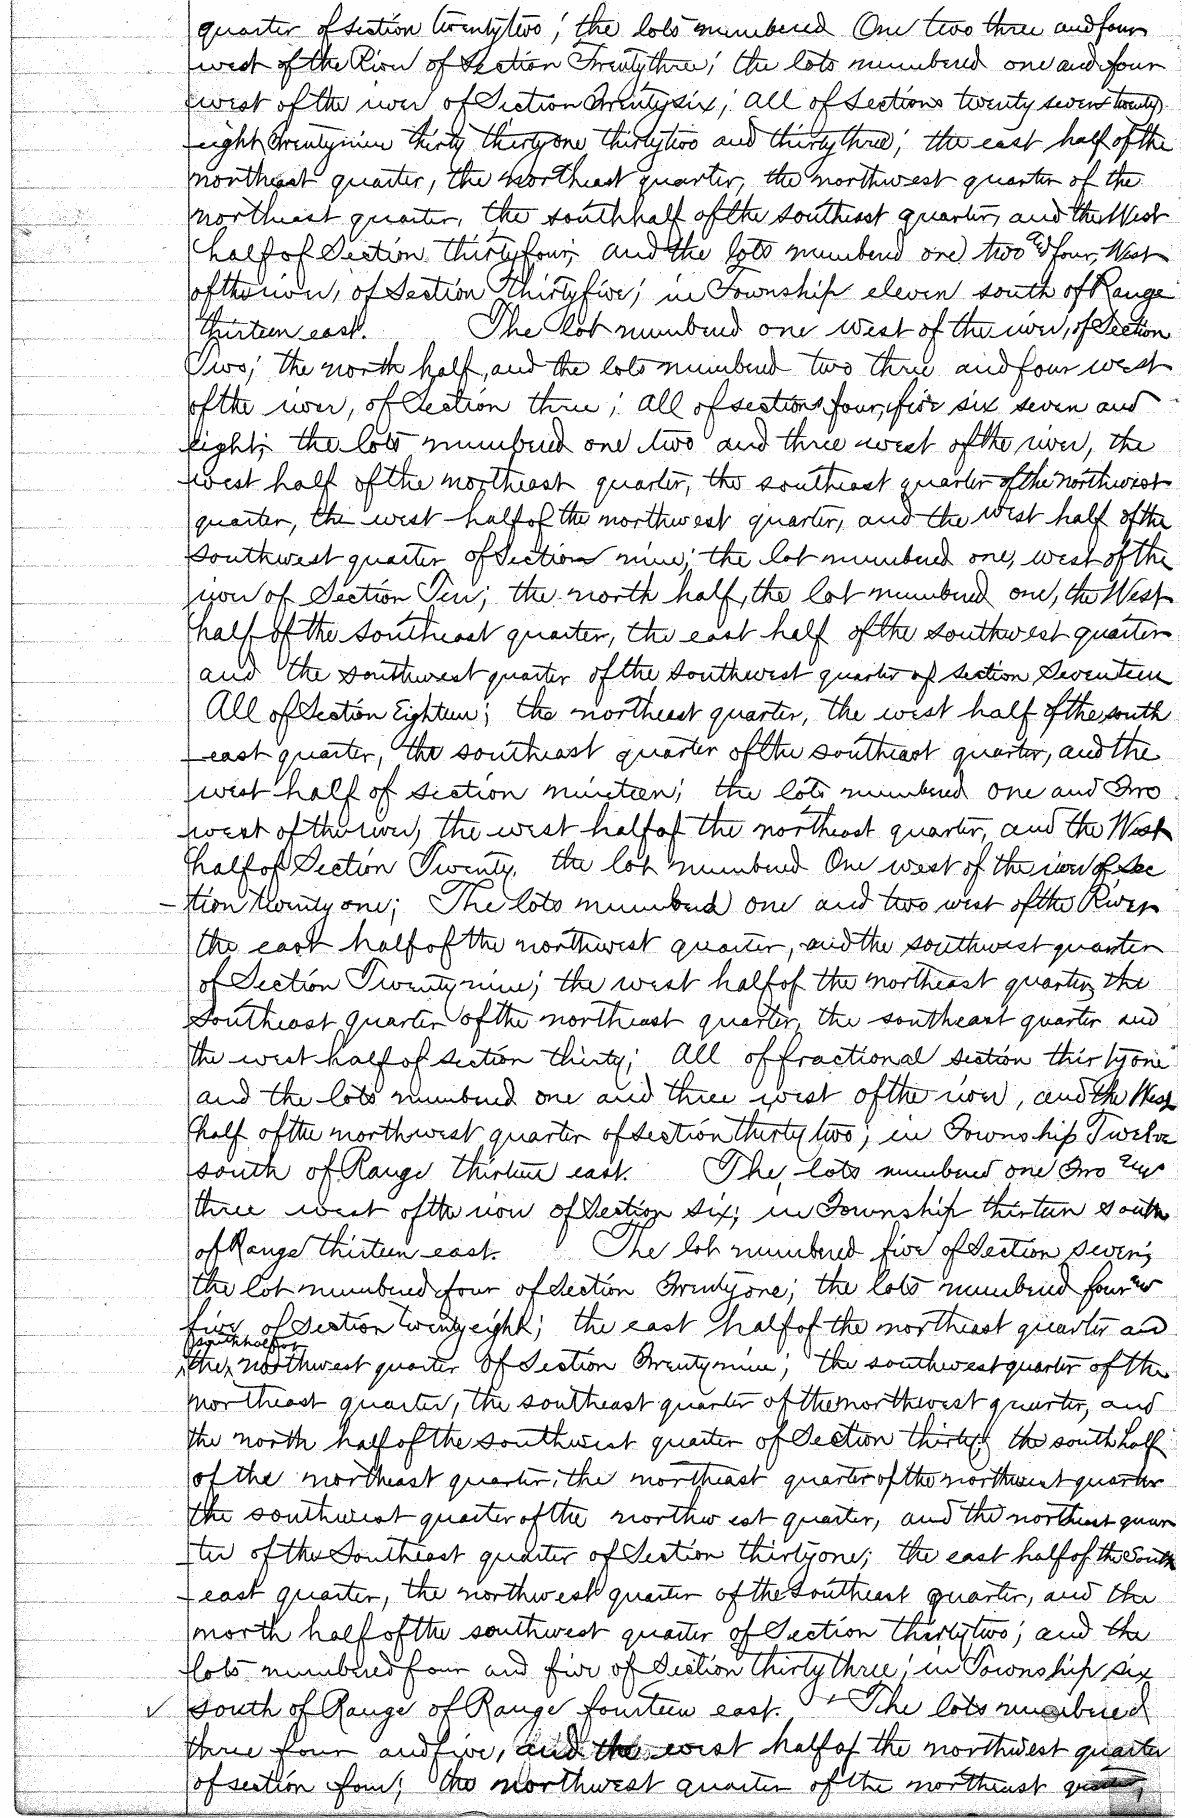 quarter of Section twentytwo; the lots numbered One two three and four
west of the River of Section Twentythree; the lots numbered one and four
west of the river of Section Twentysix; all of Sections twenty seven twenty
eight Twentynine thirty thirtyone thirtytwo and thirtythree; the east half of the
northeast quarter, the northeast quarter, the northwest quarter of the
northeast quarter, the south half of the southeast quarter, and the West
half of Section thirtyfour; and the lots numbered one two and four, West
of the river, of Section thirtyfive; in Township eleven south of Range
thirteen east. The lot numbered one west of the river, of Section
Two; the north half, and the lots numbered two three and four west
of the river, of Section three; all of sections four, five six seven and
eight; the lots numbered one two and three west of the river, the
west half of the northeast quarter, the southeast quarter of the northwest
quarter, the west half of the northwest quarter, and the west half of the
southwest quarter of Section nine; the lot numbered one, west of the
river of Section Ten; the north half, the lot numbered one, the West
half of the southeast quarter, the east half of the southwest quarter
and the southwest quarter of the southwest quarter of section Seventeen
All of Section Eighteen; the northeast quarter, the west half of the south
east quarter, the southeast quarter of the southeast quarter, and the
west half of section nineteen; the lots numbered one and Two
west of the river, the west half of the northeast quarter, and the West
half of Section Twenty, the lot numbered One west of the river of Sec
tion twenty one; The lots numbered one and two west of the River
the east half of the northwest quarter, and the southwest quarter
of Section Twentynine; the west half of the northeast quarter, the
Southeast quarter of the northeast quarter, the southeast quarter and
the west half of section thirty; All of fractional section thirtyone
and the lots numbered one and three west of the river, and the West
half of the northwest quarter of section thirty two; in Township Twelve
south of Range thirteen east. The lots numbered one Two and
three west of the river of Section six; in Township thirteen south
of Range thirteen east. The lot numbered five of Section seven;
the lot numbered four of Section Twentyone; the lots numbered four and
five of Section twentyeight; the east half of the northeast quarter and
south half of
the northwest quarter of Section Twentynine; the southwest quarter of the
northeast quarter, the southeast quarter of the northwest quarter, and
the north half of the southwest quarter of Section thirty; the south half
of the northeast quarter, the northeast quarter of the northwest quarter
the southwest quarter of the northwest quarter, and the northeast quar
ter of the Southeast quarter of Section thirtyone; the east half of the South
east quarter, the northwest quarter of the Southeast quarter, and the
north half of the southwest quarter of Section thirtytwo; and the
lots numbered four and five of Section thirtythree; in Township six
south of Range of Range fourteen east. The lots numbered
three four and five, and the west half of the northwest quarter
of section four; the northwest quarter of the northeast quarter,